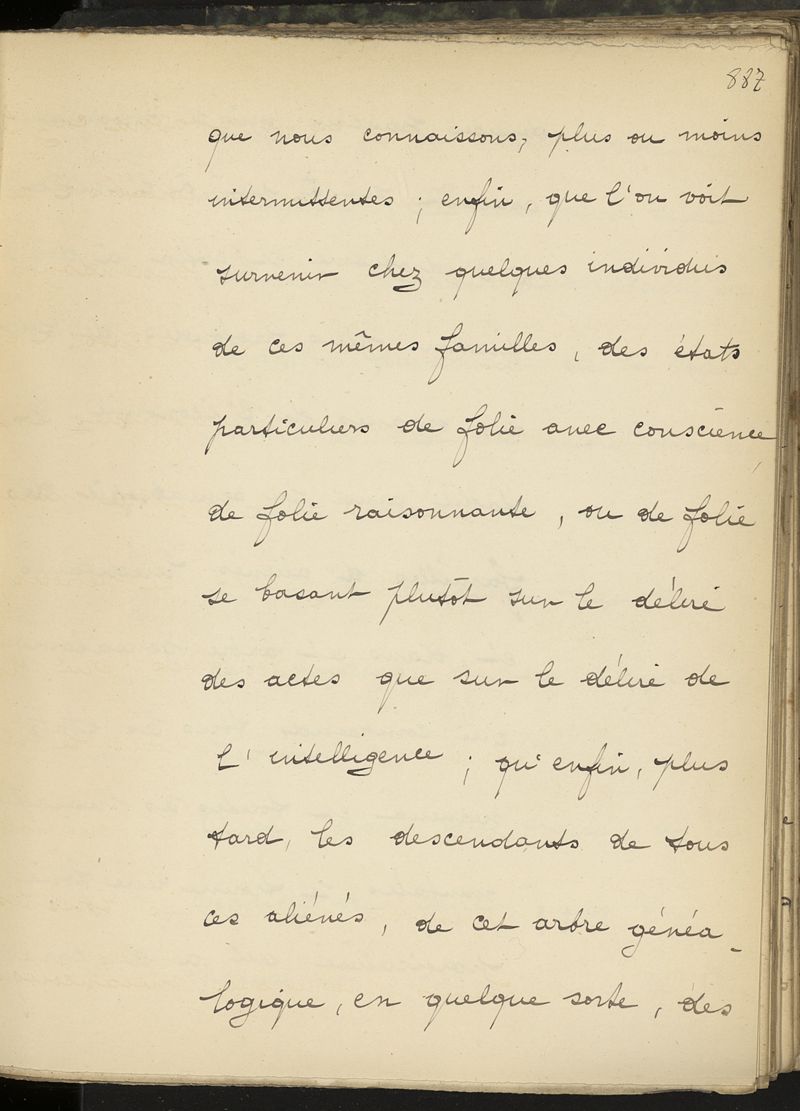 887
que nous connaissons, plus ou moins
intermittentes ; enfin, que l'on voit
survenir chez quelques individus
de ces mêmes familles, des états
particuliers de folie avec conscience,
de folie raisonnante, ou de folie
se basant plutôt sur le délire
des actes que sur le délire de
l'intelligence ; qu'enfin, plus
tard, les descendants de tous
ces aliénés, de cet arbre généa-
logique, en quelque sorte, des